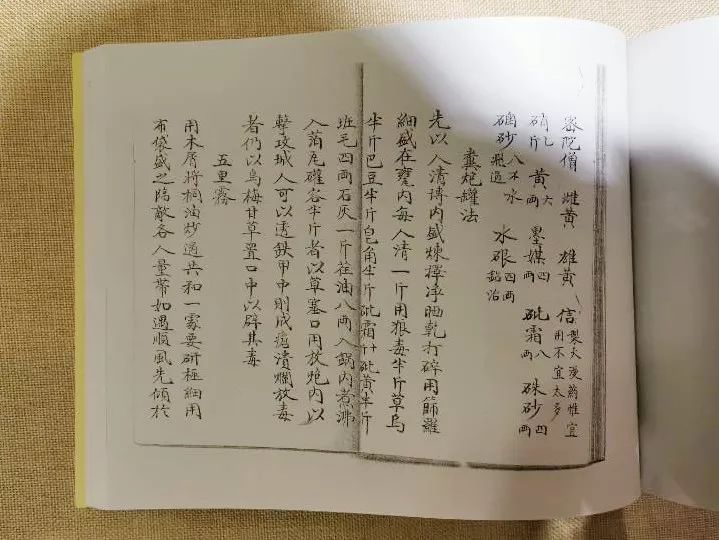 密陀僧 雌黃 雄黃 信 製火漫藥惟宜用不宜太多
硝 斤 黃 兩 墨煤四兩 砒霜八兩 硃砂四兩
砂 水飛過 水銀四兩鉛治
糞砲罐法
先以人清磚內盛煉擇净晒乾打碎用篩羅
細盛在甕內每人清一斤用狼毒半斤草烏
半斤巴豆半斤皂角半斤砒霜 砒黃半斤
班毛四兩石灰一斤荏油八兩入鍋內煮沸
入薄瓦罐容半斤者以草塞口用放砲內以
擊攻城人可以透鉄甲中則成瘡潰爛放毒
者們以烏梅甘草置口中以辟其毒
五里霧
用木屑將桐油炒過共和一處要研極細用
布袋盛之臨敵各人量帶如遇順風先傾於